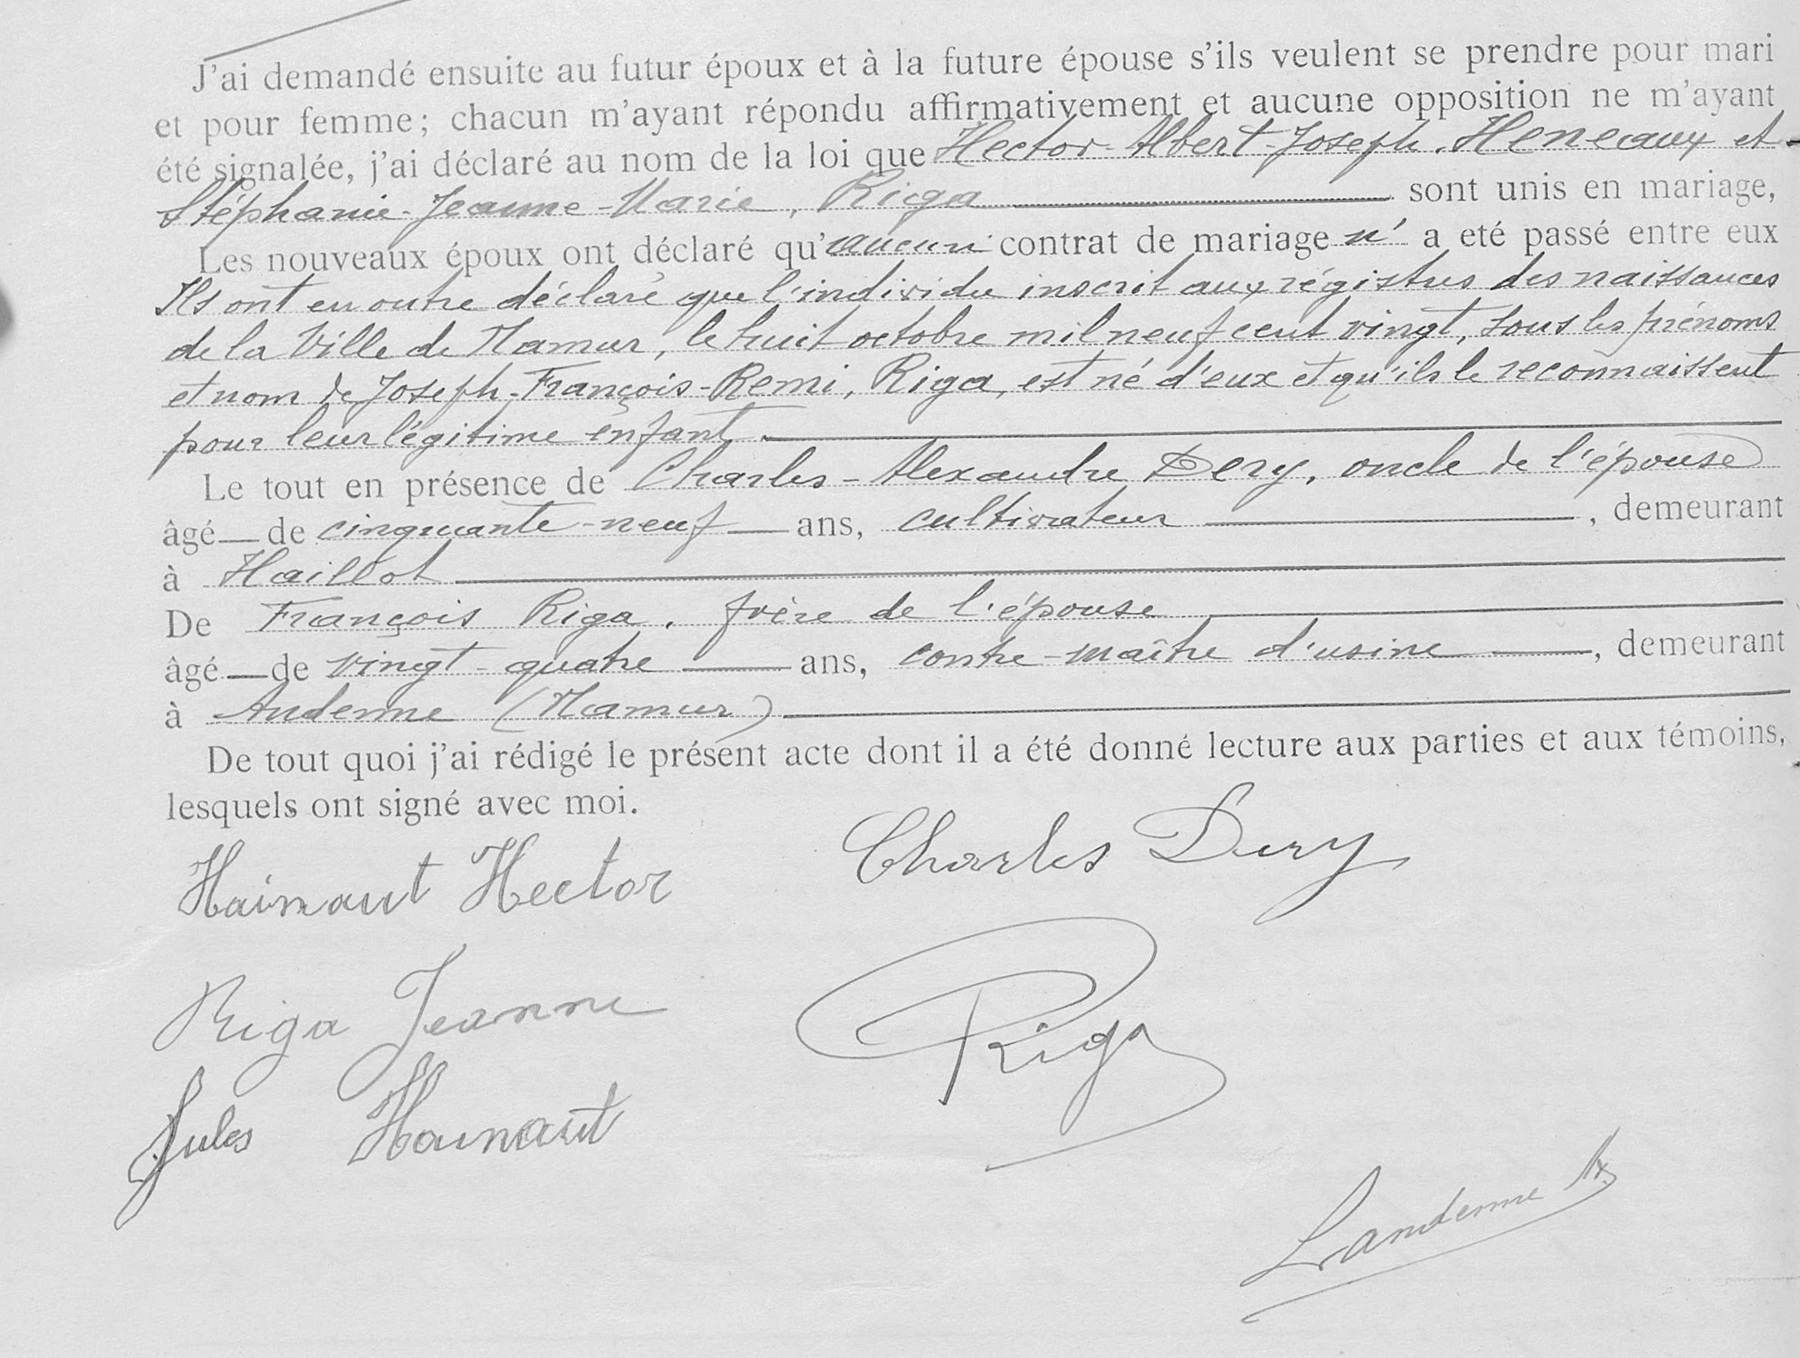 J'ai demandé ensuite au futur époux et à la future épouse s'ils veulent se prendre pour mari
et pour femme; chacun m'ayant répondu affirmativement et aucune opposition ne m'ayant
été signalée, j'ai déclaré au nom de la loi que Hector-Albert-Joseph, Heneaux et
Stéphanie-Jeanne-Marie, Riga sont unis en mariage,
Les nouveaux époux ont déclaré qu'aucun contrat de mariage n' a eté passé entre eux
Ils ont en outre déclaré que l'individu inscrit aux régistres des naissances
de la Ville de Namur, le huit octobre mil neuf cent vingt, sous les prénoms
et nom de Joseph-François-Remi, Riga, est né d'eux et qu'ils le reconnaissent
pour leur légitime enfant.
Le tout en présence de Charles-Alexandre Dery, oncle de l'épouse
âgé de cinquante-neuf ans, cultivateur, demeurant
à Haillot
De François Riga, frère de l'épouse
âgé de vingt-quatre ans, contre-maître d'usine, demeurant
à Andenne (Namur)
De tout quoi j'ai rédigé le présent acte dont il a été donné lecture aux parties et aux témoins,
lesquels ont signé avec moi.
Hainaut Hector Charles Dery
Riga Jeanne Riga
Jules Hainaut
Landenne